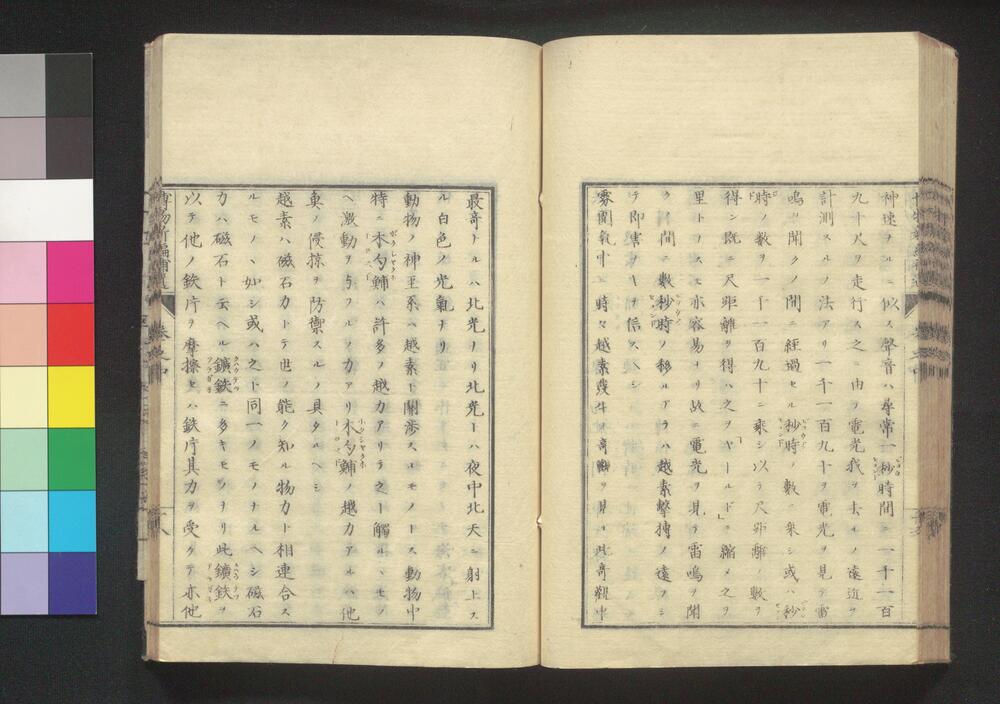 神速ナルニ似ス聲音ハ尋常一秒時間ニ一千一百
九十尺ヲ走行ス之ニ由ヲ電光我ヲ去ルノ遠近ヲ
計測スルノ法アリ一千一百九十ヲ電光ヲ見テ雷
鳴ヲ聞クノ間ニ經過セル秒時ノ數ニ乘シ或ハ秒
時ノ數ヲ一千一百九十ニ乘シ以テ尺距離ノ數ヲ
得ン既ニ尺距離ヲ得ハ之ヲ「ヤールド」ニ縮メ之ヲ
里トナス亦容易ナリ故ニ電光ヲ見テ雷鳴ヲ聞
クノ間ニ數秒時ノ移ルアラハ越素擊搏ノ遠フシ
テ即害ナキヲ信スヘシ
雰圍氣中ニ時々越素幾多ノ奇觀ヲ見ル此奇觀中
最奇ナルハ北光ナリ北光ハ夜中北天ニ射上ス
ル白色ノ光氣ナリ
動物ノ神至系ハ越素ト關渉スルモノトス動物中
特ニ木勺鯆ハ許多ノ越力アリテ之ニ觸ルヽモノ
ヘ激動ヲ與フルノ力アリ木勺鯆ノ越力アルハ他
魚ノ侵掠ヲ防禦スルノ具タルヘシ
越素ハ磁石力トテ世ノ能ク知ル物力ト相連合ス
ルモノヽ如シ或ハ之ト同一ノモノナルヘシ磁石
力ハ磁石ト云ヘル鑛鉄ニ多キモノナリ此鑛鉄ヲ
以テ他ノ鉄片ヲ摩擦セハ鉄片其力ヲ受ケテ亦他
博物新編補遺 卷之中